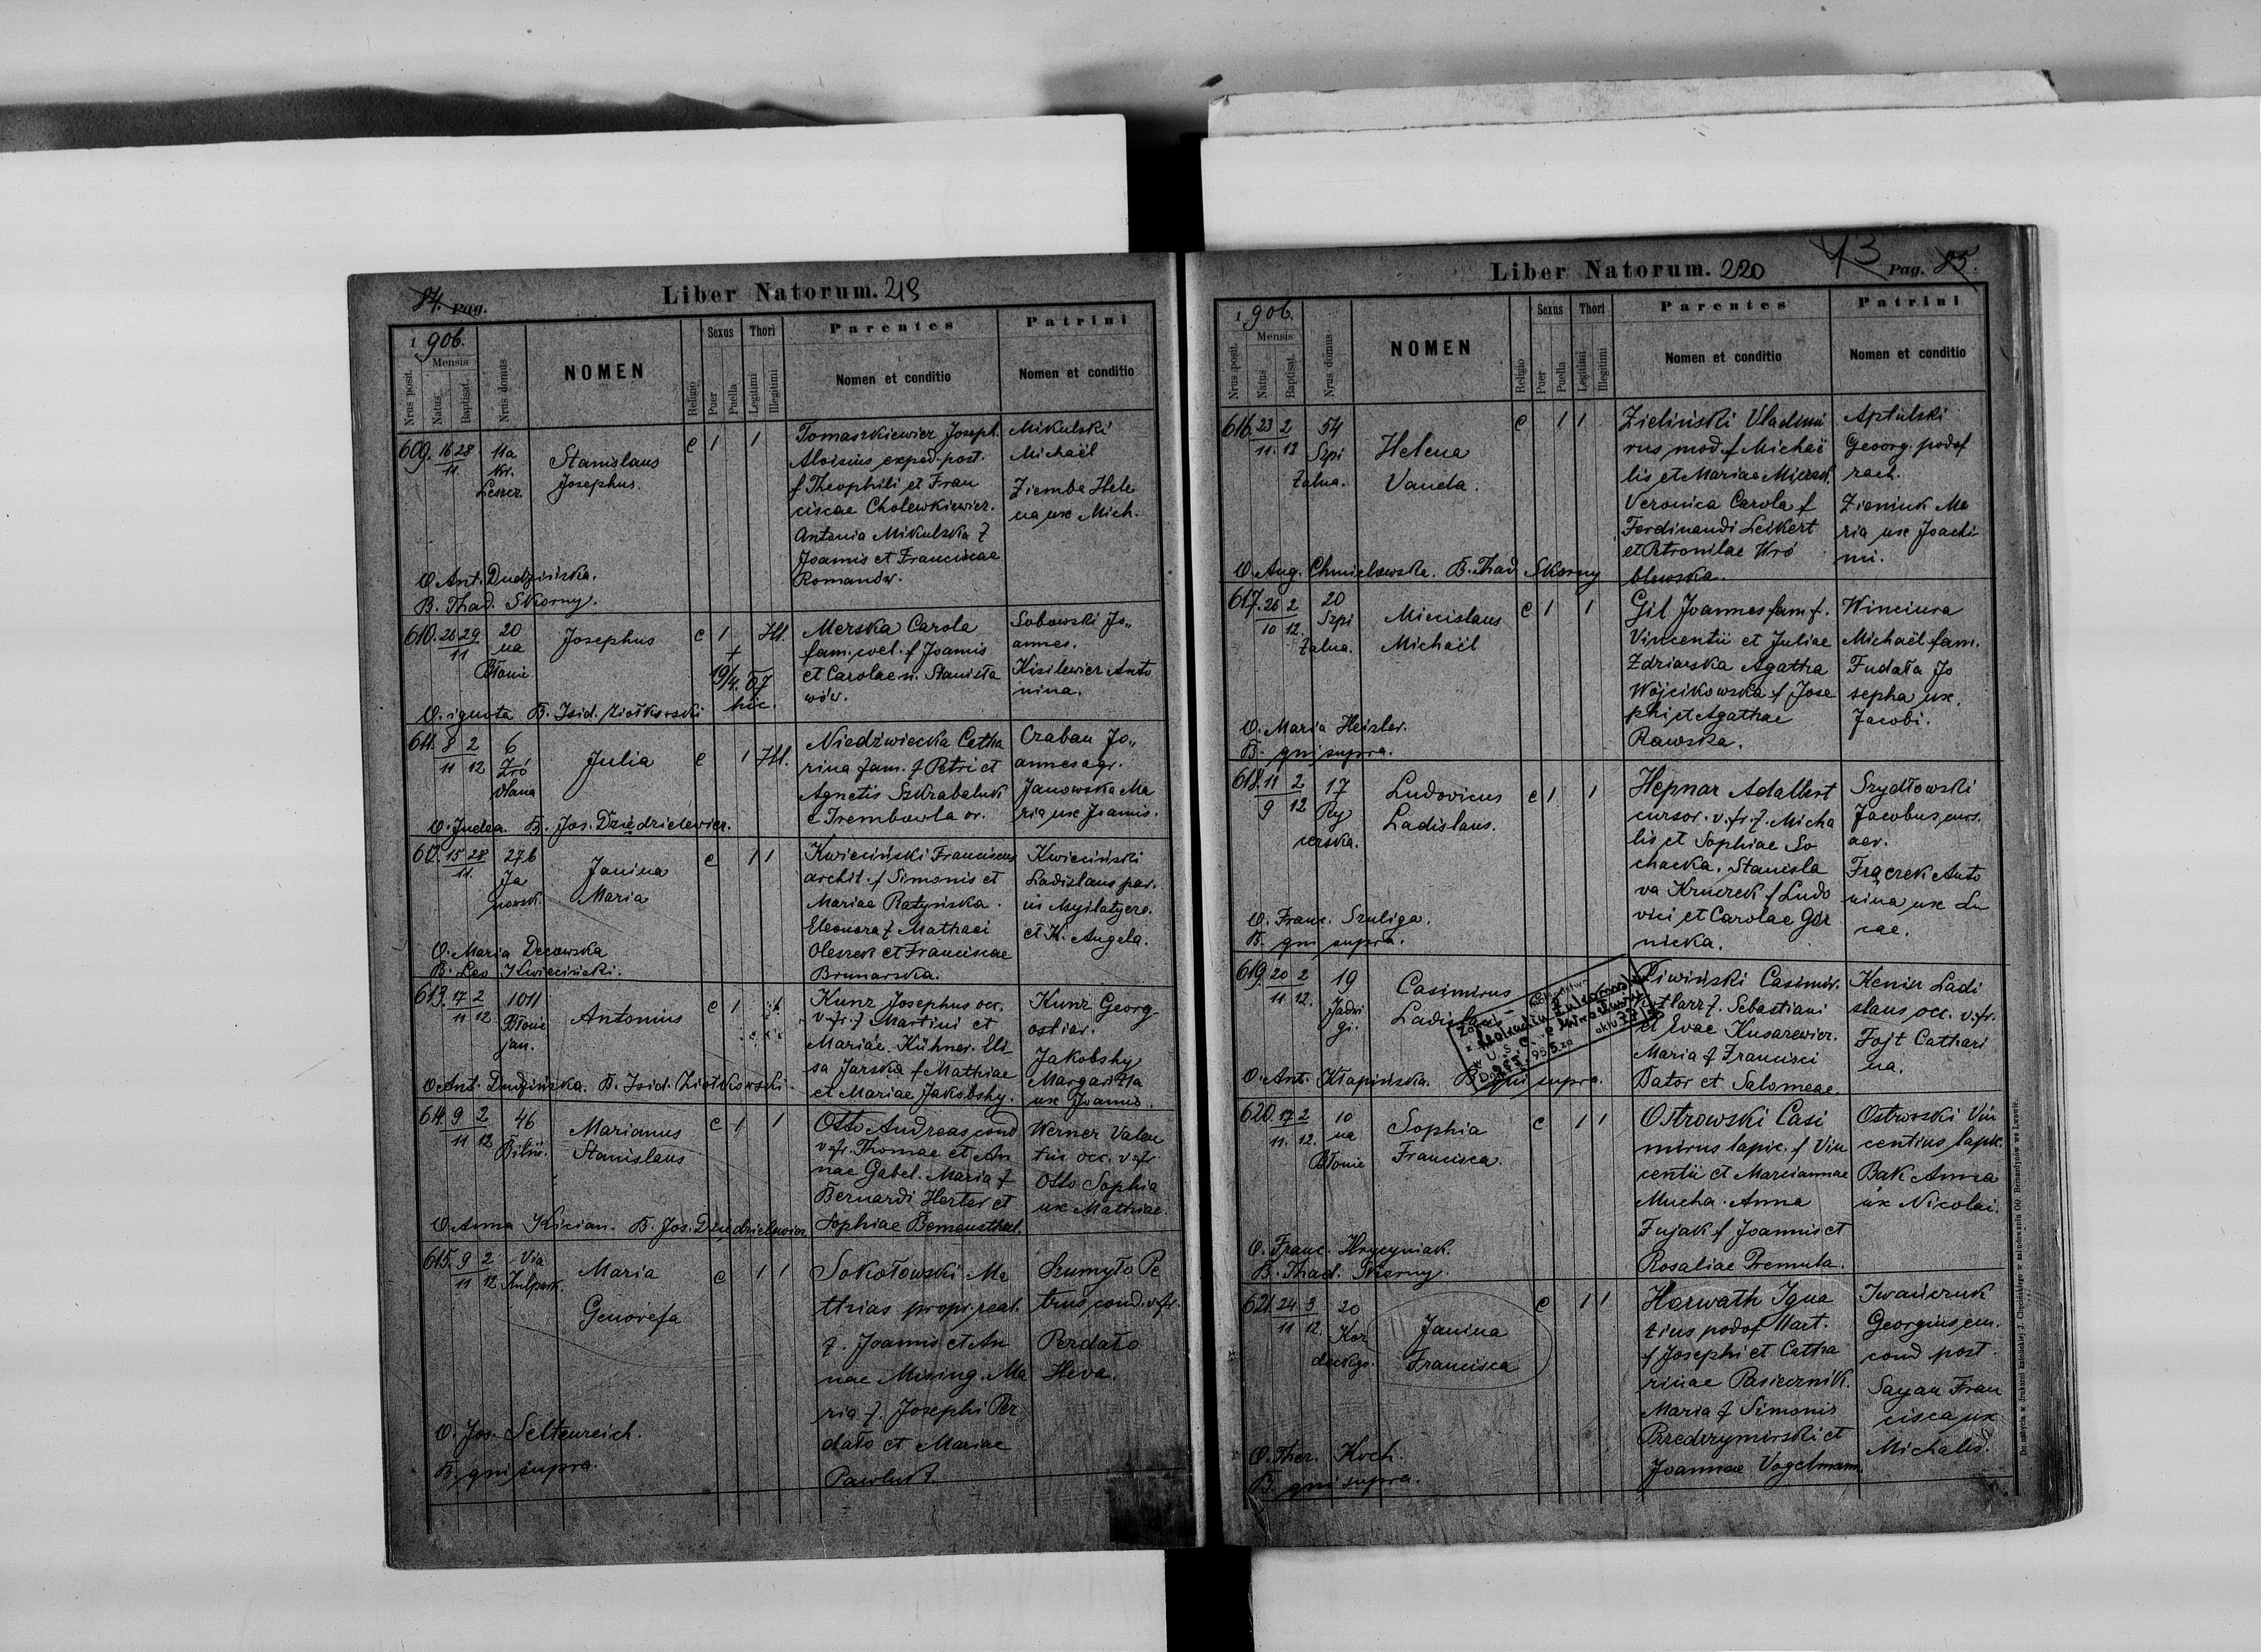 84. Pag.
Liber Natorum. 219
1906.
Mensis
Nrus posit.
Natus
Baptisat.
Nrus domus
NOMEN
Religio
Sexus
Puer
Puella
Thori
Legitimi
Illegitimi
Parentes
Nomen et conditio
Patrini
Nomen et conditio
609. 16 28
11.
11a
Kr.
Leszcz.
Stanislaus
Josephus.
c 1 1
Tomaszkiewicz Joseph.
Aloisius exped. post.
f Theophili et Fran
ciscae Cholewkiewicz.
Antonia Mikulska f
Joannis et Franciscae
Romanów.
Mikulski
Michaël
Ziemba Hele
na ux Mich.
O. Ant. Dudzińska.
B. Thad. Skorny.
610. 26 29
11
20
na
Błonie
Josephus
c 1 Ill.
+
19/4. 07
hic.
Merska Carola
fam. coel. f Joannis
et Carolae n. Stanisła
wów.
Sobowski Jo„
annes.
Kisilewicz Anto
nina.
O. ignota B. Isid. Ziołkowski
611. 8 2
11 12
6
Źró
dlana
Julia
c 1 Ill.
Niedźwiecka Catha
rina fam. f Petri et
Agnetis Szkrabaluk
e Trembowla or.
Czaban Jo„
annes agr.
Janowska Ma
ria ux Joannis.
O. Judea. B. Jos. Dziedzielewicz.
612. 15 28
11.
27b
Ja
nowsk.
Janina
Maria
c 1 1
Kwieciński Franciscus
archit. f Simonis et
Mariae Ratyńska.
Eleonora f Mathaei
Oleszek et Franciscae
Brunarska.
Kwieciński
Ladislaus par.
in Mysłatycze.
et K. Angela.
O. Maria Decowska
B. Leo Kwieciński.
613. 17 2
11 12
1011
Błonie
jan.
Antonius
c 1
Kunz Josephus occ.
v. fr. f Martini et
Mariae Kühner. Eli
sa Jarska f Mathiae
et Mariae Jakobshy.
Kunz Georg
ostiar.
Jakobshy
Margaritta
ux Joannis.
O. Ant. Dudzińska. B. Isid. Ziołkowski.
614. 9 2
11 12
46
Biliń.
Marianus
Stanislaus
c 1 1
Otto Andreas cond
v. fr. Thomae et An
nae Gabel. Maria f
Bernardi Herter et
Sophiae Bomensthal.
Werner Valen
tin occ. v. fr
Otto Sophia
ux Mathiae.
O. Anna Kician. B. Jos. Dziedzielewicz.
615. 9 2
11 12
Via
Kulpark.
Maria
Genovefa
c 1 1
Sokołowski Ma
thias propr. real.
f. Joannis et An
nae Mising. Ma
ria f. Josephi Per
dało et Mariae
Pawluk.
Szumyło Pe
trus cond. v. fr.
Perdało
Heva.
O. Jos. Seltenreich.
B. qui supra.
Liber Natorum. 220
43
Pag. 85.
1906.
Mensis
Nrus posit.
Natus
Baptisat.
Nrus domus
NOMEN
Religio
Sexus
Puer
Puella
Thori
Legitimi
Illegitimi
Parentes
Nomen et conditio
Patrini
Nomen et conditio
616. 23 2
11. 12
54
Szpi
talna.
Helena
Vanda.
c 1 1
Zieliński Vladimi
rus mod. f Michaë
lis et Mariae
Veronica Carola f
Ferdinandi Leikert
et Petronilae Wró
blewska.
Aptulski
Georg. podof
rach.
Zieniuk Ma
ria ux Joachi
mi.
O. Aug. Chmielowska. B. Thad Skorny
617. 26 2
10 12.
20
Szpi
talna.
Miecislaus
Michaël
c 1 1
Gil Joannes fam f.
Vincentii et Juliae
Zdziarska Agatha
Wójcikowska f Jose
phi et Agathae
Rawska.
Winciura
Michaël fam.
Fudała Jo
sepha ux.
Jacobi.
O. Maria Heisler.
B. qui supra.
618. 11 2
9 12
17
Ry
cerska.
Ludovicus
Ladislaus.
c 1 1
Hepnar Adalbert
cursor. v. fr. f. Micha
lis et Sophiae So
chacka. Stanisla
va Kruczek f Ludo
vici et Carolae Gór
nicka.
Szydłowski
Jacobus curs.
aer.
Frączek Anto
nina ux Lu
cae.
O. Franc. Szuliga.
B. qui supra.
619. 20 2
11 12.
19
Jadwi
gi.
Casimirus
Ladislaus
Piwiński Casimir.
f. Sebastiani
et Evae Kusarewicz.
Maria f Francisci
Bator et Salomeae.
Kenin Ladi
slaus occ. v. fr.
Fojt Cathari
na.
O. Ant. Kłapińska. B. qui supra.
620. 17 2
11. 12.
10
na
Błonie
Sophia
Francisca.
c 1 1
Ostrowski Casi
mirus lapic. f Vin
centii et Marciannae
Mucha. Anna
Fujak f Joannis et
Rosaliae Premuta.
Ostrowski Vin
centius lapic.
Bak Anna
ux Nicolai.
O. Franc. Hrycyniak.
B. Thad. Skorny.
621. 24 3
11 12.
20
Kor
deckgo.
Janina
Francisca
c 1 1
Horwath Igna
tius podof Mart.
f Josephi et Catha
rinae Pasiecznik.
Maria f Simonis
Przedrzymirski et
Joannae Vogelmann.
Iwańczuk
Georgius em.
cond post.
Sayan Fran
cisca ux
Michalis.
O. Ther. Koch.
B. qui supra.
Do nabycia w Drukarni katolickiej J. Chęcińskiego w zabudowaniu OO. Bernardynów we Lwowie.